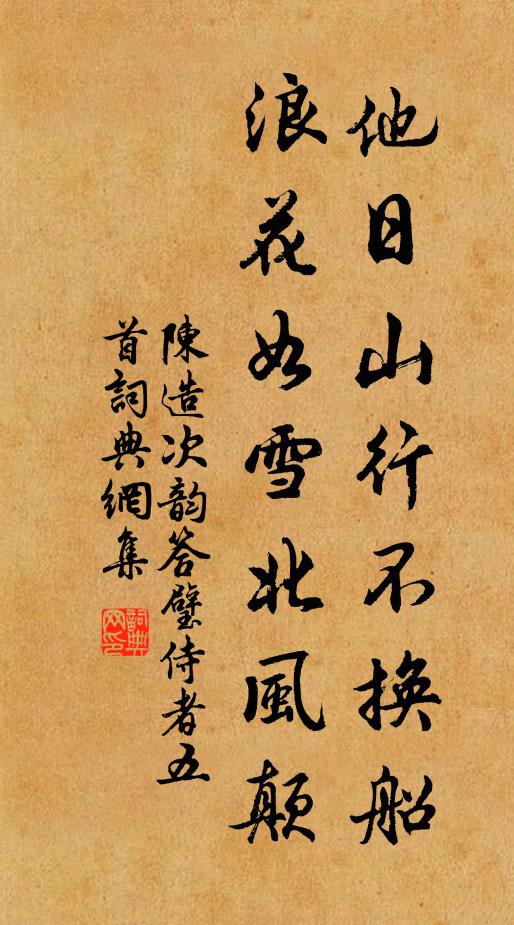 他日山行不換船
浪花如雪北風顛
陳造次韵答璧侍者五
首詞典網集
詞典
网印